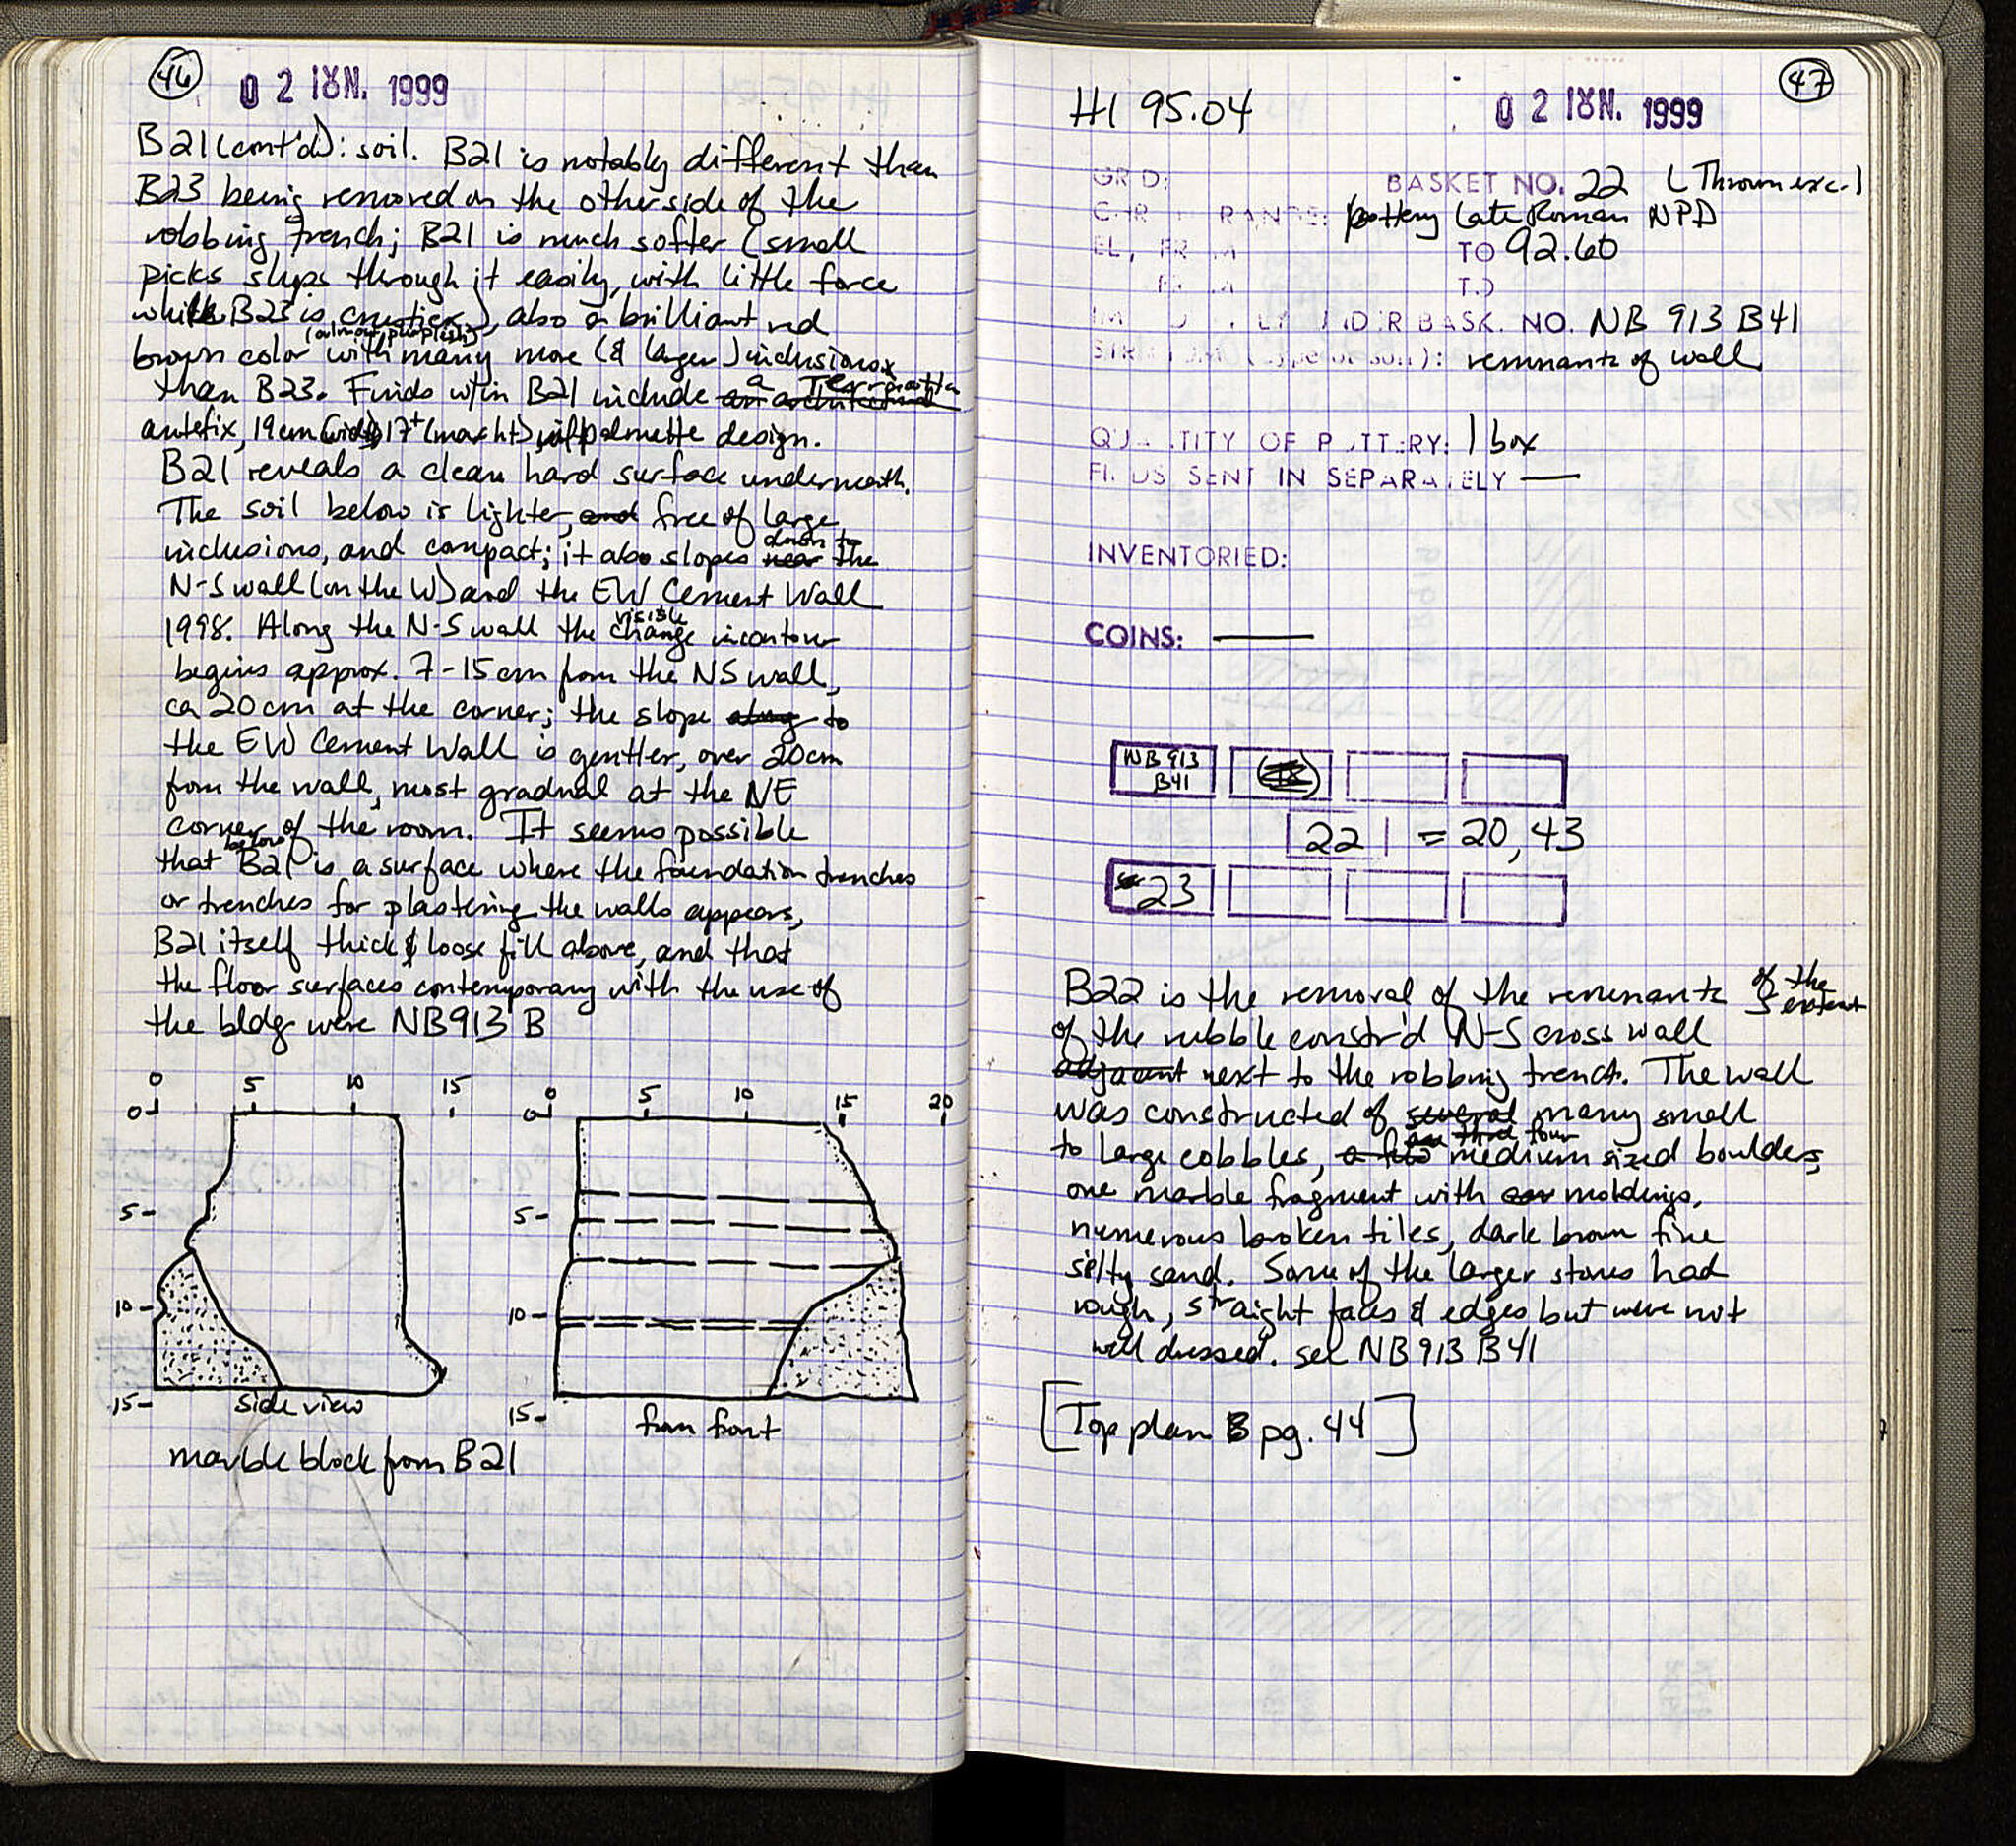 46
02 ΙΟΥΝ. 1999
B21 (cont'd): soil. B21 is notably different than
B23 being removed on the other side of the
robbing trench; B21 is much softer (small
picks slips through it easily, with little force
while B23 is crustier), also a brilliant red
(almost purplish)
brown color with many more (& larger) inclusions
than B23. Finds w/in B21 include an architectural a Terracotta
antefix, 19cm (width) 17+ (max ht) w/ palmette design.
B21 reveals a clean hard surface underneath.
The soil below is lighter, and free of large
inclusions, and compact; it also slopes near down to the
N-S wall (on the W) and the EW Cement Wall
1998. Along the N-S wall the visible change in contour
begins approx. 7-15cm from the NS wall,
ca 20cm at the corner; the slope along to
the EW Cement Wall is gentler, over 20cm
from the wall, most gradual at the NE
corner of the room. It seems possible
that below B21 is a surface where the foundation trenches
or trenches for plastering the walls appears,
B21 itself thick & loose fill above, and that
the floor surfaces contemporary with the use of
the bldg were NB913 B
0 5 10 15
0 5 10 15 20
0
5
10
15
0
5
10
15
side view
from front
marble block from B21
47
H1 95.04
02 ΙΟΥΝ. 1999
GRID: BASKET NO. 22 (Thrown exc.)
RANGE: pottery Late Roman NPD
EL, FROM TO 92.60
TO
UNDER BASK. NO. NB 913 B41
remnants of wall
QUANTITY OF POTTERY: 1 box
FINDS SENT IN SEPARATELY —
INVENTORIED:
COINS: —
NB 913
B41
22 = 20, 43
23
B22 is the removal of the remnants of the S extent
of the rubble constr'd N-S cross wall
adjacent next to the robbing trench. The wall
was constructed of several many small
to large cobbles, a few three four medium sized boulders,
one marble fragment with moldings,
numerous broken tiles, dark brown fine
silty sand. Some of the larger stones had
rough, straight faces & edges but were not
well dressed. see NB 913 B41
[Top plan B pg. 44]